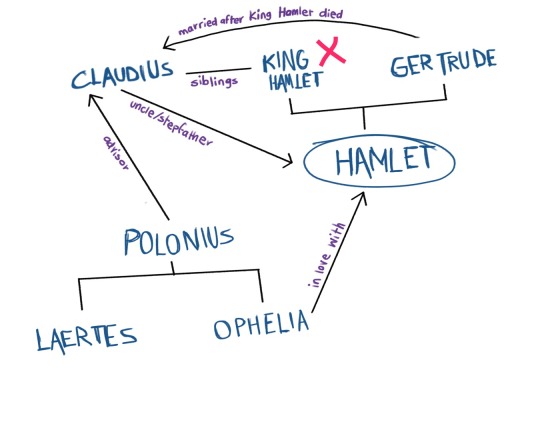 married after King Hamlet died
CLAUDIUS
siblings
KING
HAMLET
GERTRUDE
uncle/stepfather
HAMLET
advisor
POLONIUS
in love with
LAERTES
OPHELIA